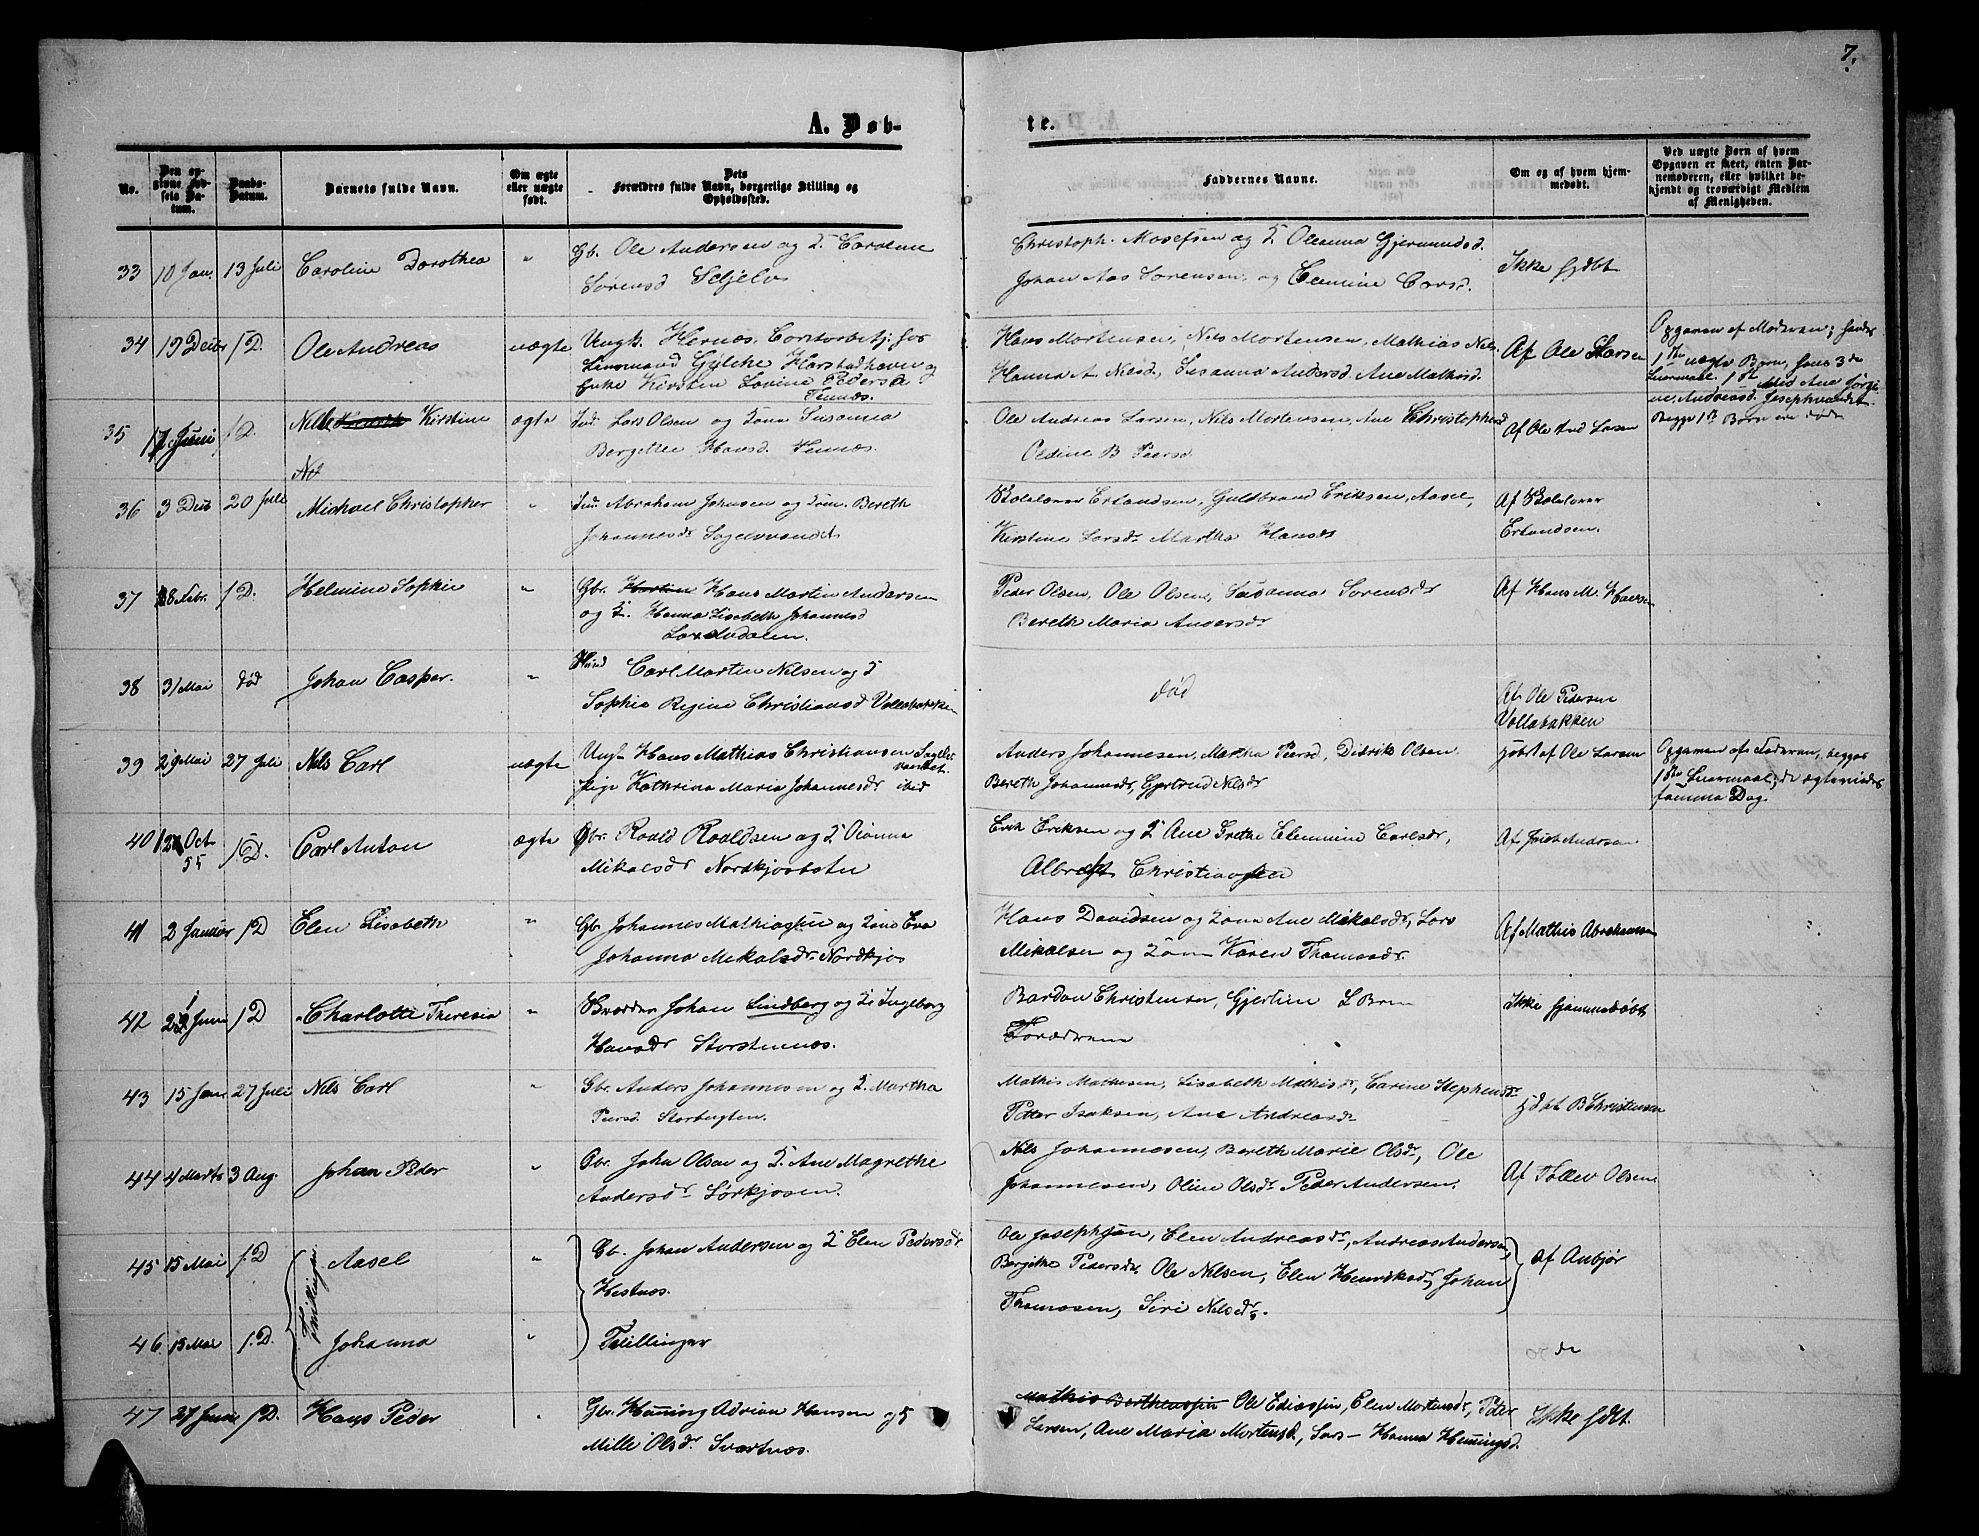 7.
A. Døb-
te.
No.
Den op-
givne Fød-
sels Da-
tum.
Daabs-
Datum.
Barnets fulde Navn.
Om ægte
eller uægte
født.
Dets
Forældres fulde Navn, borgerlige Stilling og
Opholdssted.
Faddernes Navne.
Om og af hvem hjem-
medøbt.
Ved uægte Børn af hvem
Opgaven er skeet, enten Bar-
nemoderen, eller hvilket be-
kjendt og troværdigt Medlem
af Menigheden.
33 10 Jan. 13 Juli Caroline Dorothea " Gb. Ole Andersen og Caroline
Sørensd
Christoph. og Oleanna Gjermundsd.
Johan Aas Sørensen, og Elemine
Ikke hjdbt
34 19 Debr /D. Ole Andreas uægte Ungk. Hernæs, Contorbetj. hos
Lensmand Harstadhavn og
Pike Kirstin Lovine Pedersd
Tennæs.
Hans Mortensen, Nils Mortensen, Mathias Nils.
Hanna A. Nilsd, Susanna Andersd. Ane Mathisd.
Af Ole Larsen
Opgaven af Moderen; hendes
1ste uægte Barn, hans 3de
Leiermaal. 1st Med Ane
Andreasd. Josephvandet.
Begge 1st Børn ere døde
35 17 Juni /D. Nille Kirstine ægte Ind. Lars Olsen og Kone Susanna
Bergithe Hansd. Tennæs.
Ole Andreas Larsen, Nils Mortensen, Ane Christophersd
Oldine B Peersd.
Af Ole And Larsen
36 3 Deb 20 Juli Michael Christopher " Ind. Abraham Johnsen og Kone. Bereth
Johannesdr Sagelvvandet.
Skolelærer Erlandsen, Guldbrand Eriksen, Aasel,
Kirstine Larsdr Martha Hansdr
Af Skolelærer
Erlandsen.
37 18 Febr. /D. Helmine Sophie " Gbr. Hans Martin Andersen
og K. Hanna Lisabeth Johannesd
Peder Olsen, Ole Olsen, Susanna Sørensdr
Bereth Maria Andersdr
Af Hans M. Hansen
38 31 Mai død Johan Casper. " Huusmd Carl Martin Nilsen og K
Sophia Regine Christiansd Vollabakken
død
Af Ole Pedersen
Vollabakken
39 29 Mai 27 Juli Nils Carl uægte Ungk. Hans Mathias Christiansen Sagelv-
vandet.
Pige Kathrina Maria Johannesdr ibid
Anders Johannesen, Martha Peersd, Didrik Olsen
Bereth Johannesdr, Gjertrud Nilsdr
hjdbt af Ole Larsen
Opgaven af Faderen, begges
1ste Leiermaal; de ægteviedes
samme Dag.
40 12 Oct
55 /D. Carl Anton ægte Gbr. Roald Roaldsen og K
Mikalsdr Nordkjosbotn
Erik Eriksen og K Ane Grethe Elemine Carlsdr,
Albregt Christiansen
Af Andersen
41 2 Januar /D Elen Lisabeth " Gbr Johannes Mathiassen og Kone Eva
Johanna Mikalsdr. Nordkjos
Hans Davidsen og Kone Ane Mikalsdr, Lars
Mikalsen og Kone Karen Thomasdr.
Af Mathis Abrahamsen
42 Juni /D Charlotte Theresia " Johan Lindberg og K. Ingeborg
Hansdr Storstennæs.
Bardon Christensen, Gjertine L
Forældrene
Ikke hjemmedøbt
43 15 Jan 27 Juli Nils Carl " Gbr. Anders Johannesen og K. Martha
Peersd. Storbugten.
Mathis Mathisen, Lisabeth Mathisdr, Carine Stephensdr
Petter Isaksen, Ane Andreasdr
hjdbt B Christensen
44 4 Marts 3 Aug. Johan Peder " Gbr. John Olsen og K. Ane Magrethe
Andersdr Sørkjosen.
Nils Johannesen, Bereth Marie Olsdr, Ole
Johannesen, Oline Olsdr Peder Andersen.
Af Tollev Olsen
45 15 Mai /.D Aasel " Gb. Johan Andersen og K Elen Pedersdr
Hestnæs.
Tvillinger
Ole Josephsen, Elen Andreasdr, Andreas Andersen,
Bergithe Pedersdr. Ole Nilsen, Elen Henriksdr, Johan
Thomasen, Siri Nilsdr.
af Anbjør
46 15 Mai /.D. Johanna " Tvillinger
do
47 27 Juni /D. Hans Peder " Gbr. Henning Adrian Hansen og K
Mille Olsdr. Svartnæs.
Mathis Bertheussen Ole Eliassen, Elen Mortensdr, Peter
Larsen, Ane Maria Mortensd, Lars - Hanna Henningsd.
Ikke hjdbt.